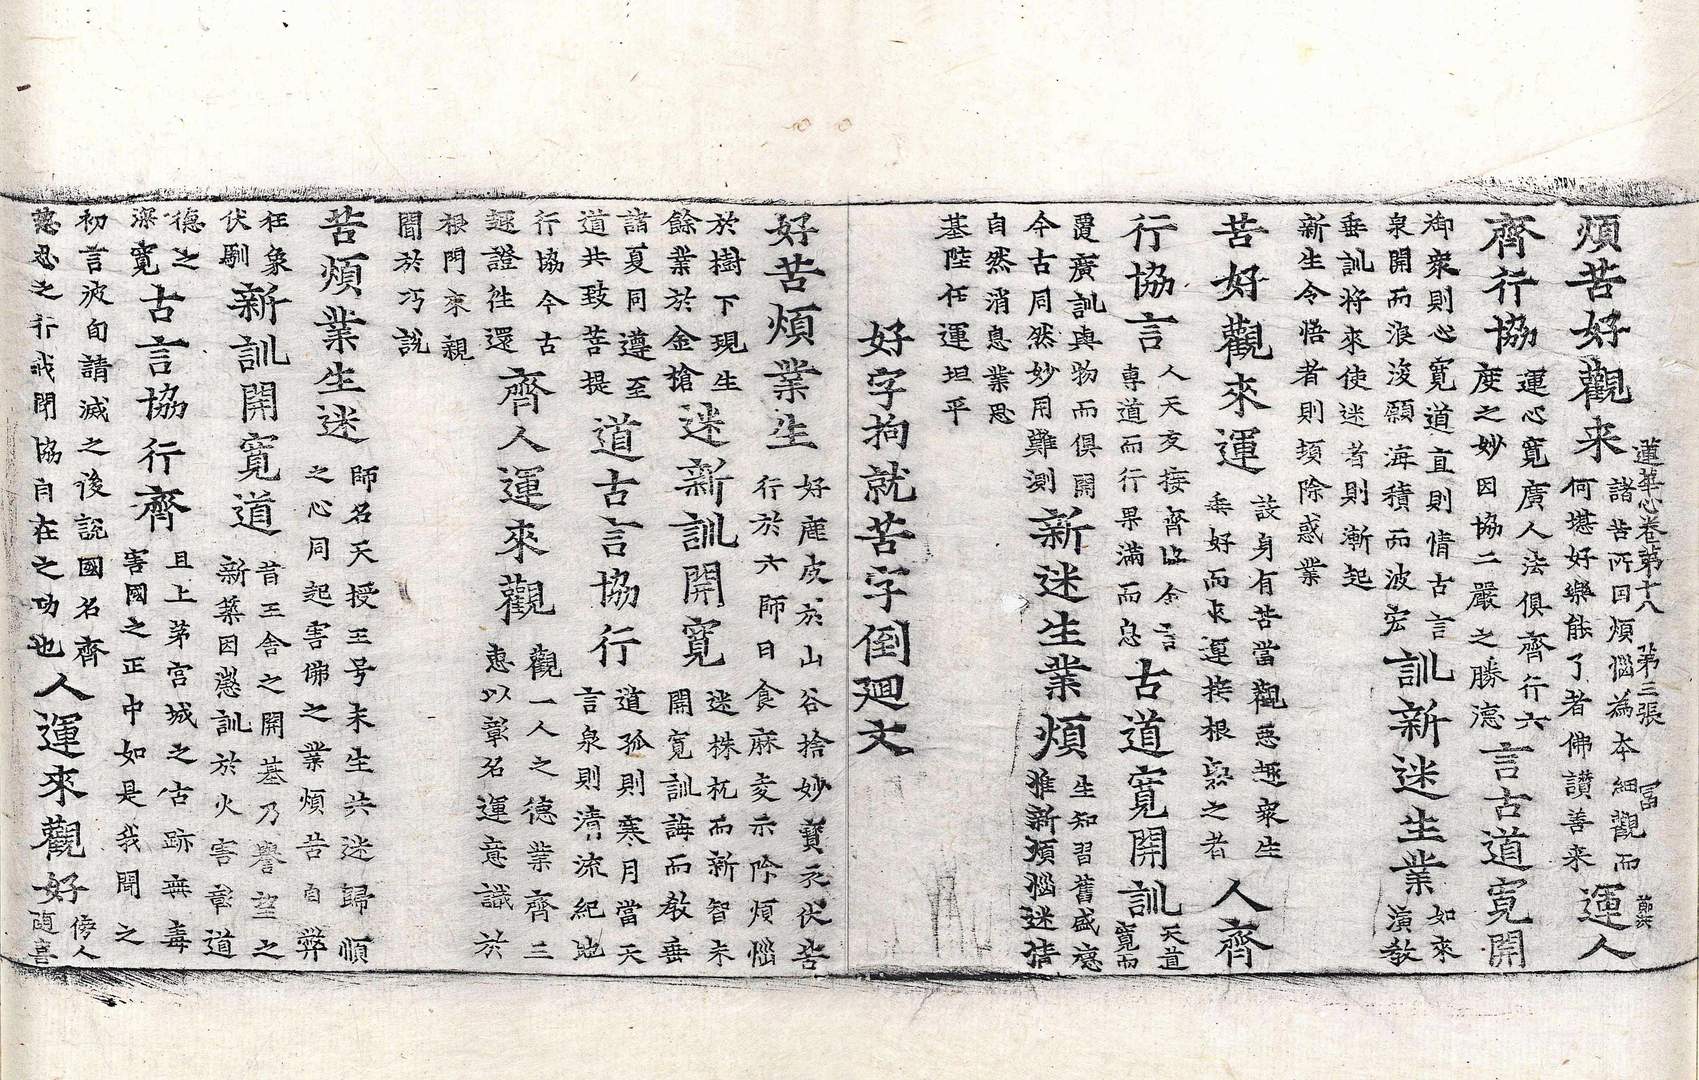 蓮華心卷第十八 第三張 冨
煩苦好觀来
諸苦所因煩惱為本細觀而
何堪好樂能了者佛讃善来
運人
齊行協
運心寛廣人法俱齊行六
度之妙因協二嚴之勝德
言古道寛開
御衆則心寛道直則情古言
泉開而浪浚願海積而波宏
訓新迷生業
如來
演敎
垂訓將來使迷者則漸起
新生令悟者則頓除惑業
苦好觀來運
設身有苦當觀悪趣衆生
垂好而求運接根熟之者
人齊
行協言
人天交接齊協金言
専道而行果滿而息
古道寛開訓
天道
寛而
覆廣訓與物而俱開
今古同然妙用難測
新迷生業煩
生知習舊盛德
惟新煩惱迷情
自然消息業
基陛任運坦平
好字拘就苦字倒廻文
好苦煩業生
好鹿皮於山谷捨妙寳衣伏苦
行於六師日食麻麦示除煩惱
於樹下現生
餘業於金搶
迷新訓開寛
迷株杌而新智未
開寛訓誨而敎垂
諸夏同遵至
道共致菩提
道古言協行
道孤則寒月當天
言泉則清流紀地
行協今古
趣證往還
齊人運來觀
觀一人之德業齊三
惠以彰名運意識於
根門來親
聞於巧說
苦煩業生迷
師名天授王号未生共迷歸順
之心同起害佛之業煩苦自弊
狂象
伏馴
新訓開寛道
昔王舍之開基乃譽望之
新築因懲訓於火害章道
德之
深寛
古言協行齊
且上茅宮城之古跡無毒
害國之正中如是我聞之
初言波旬請滅之後説國名齊
慈忍之行我聞協自在之功也
人運來觀好
傍人
随喜